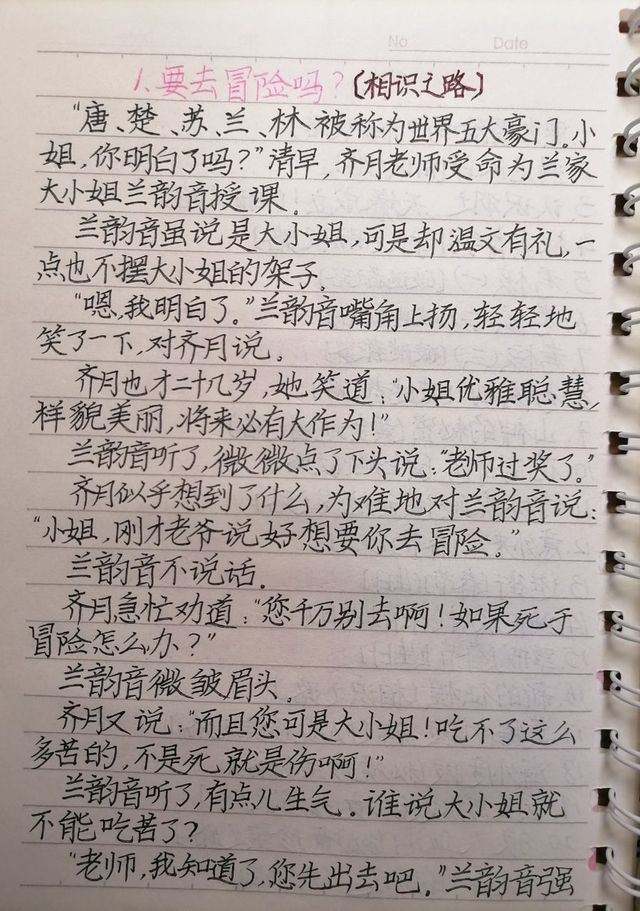 No Date
1、要去冒险吗？〔相识之路〕
“唐、楚、苏、兰、林被称为世界五大豪门。小
姐，你明白了吗？”清早，齐月老师受命为兰家
大小姐兰韵音授课。
兰韵音虽说是大小姐，可是却温文有礼，一
点也不摆大小姐的架子。
“嗯，我明白了。”兰韵音嘴角上扬，轻轻地
笑了一下，对齐月说。
齐月也才二十几岁，她笑道：“小姐优雅聪慧，
样貌美丽，将来必有大作为！”
兰韵音听了，微微点了下头说：“老师过奖了。”
齐月似乎想到了什么，为难地对兰韵音说：
“小姐，刚才老爷说好想要你去冒险。”
兰韵音不说话。
齐月急忙劝道：“您千万别去啊！如果死于
冒险怎么办？”
兰韵音微皱眉头。
齐月又说：“而且您可是大小姐！吃不了这么
多苦的，不是死就是伤啊！”
兰韵音听了，有点儿生气。谁说大小姐就
不能吃苦了？
“老师，我知道了，您先出去吧。”兰韵音强